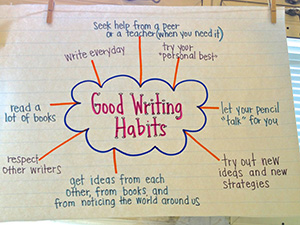 Seek help from a peer
or a teacher (when you need it)
write everyday
try your
"personal best"
Good Writing
Habits
read a
lot of books
let your pencil
"talk" for you
respect
other writers
try out new
ideas and new
strategies
get ideas from each
other, from books, and
from noticing the world around us